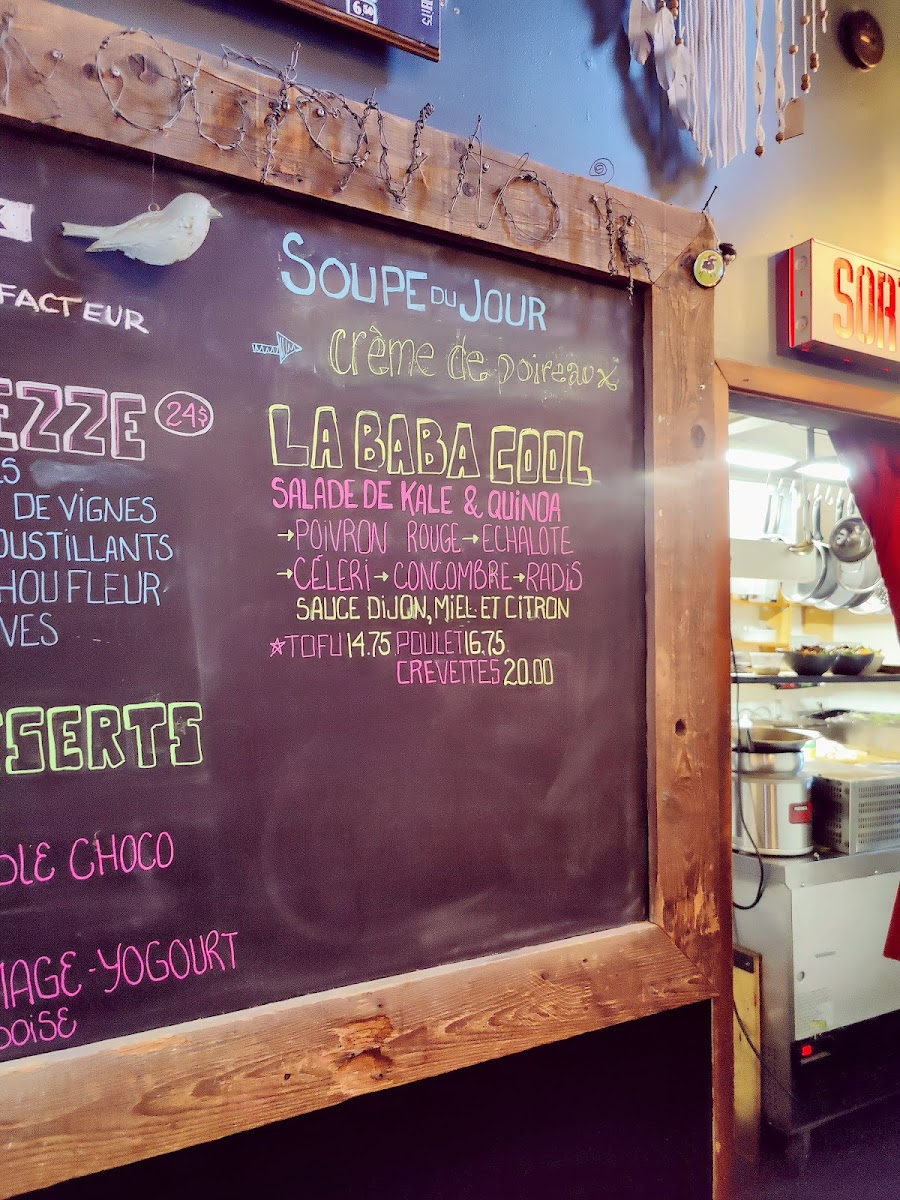 6.50
FACTEUR
EZZE 24$
ES
DE VIGNES
OUSTILLANTS
HOU FLEUR
VES
SSERTS
DLE CHOCO
MAGE-YOGOURT
BOISE
SOUPE DU JOUR
crème de poireaux
LA BABA COOL
SALADE DE KALE & QUINOA
→POIVRON ROUGE→ECHALOTE
→CÉLERI→CONCOMBRE→RADIS
SAUCE DIJON, MIEL ET CITRON
☆TOFU 14.75 POULET 16.75
CREVETTES 20.00
SORT